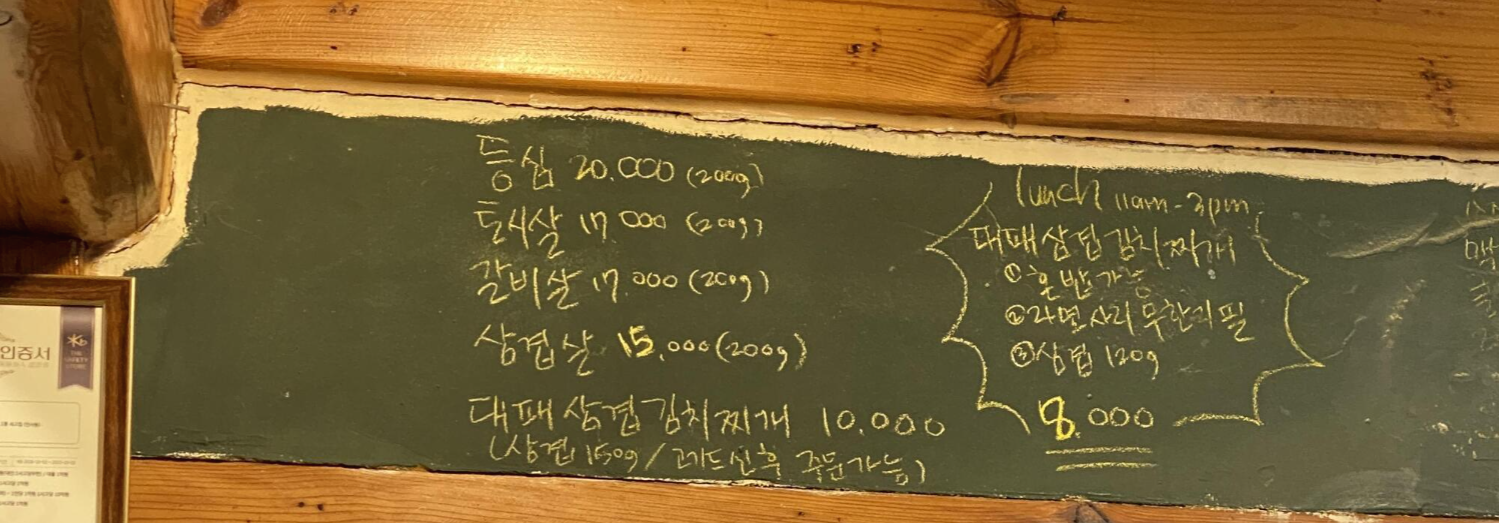 등심 20.000 (200g)
토시살 17.000 (200g)
갈비살 17.000 (200g)
삼겹살 15.000 (200g)
대패삼겹김치찌개 10.000
(삼겹 150g / 고기드신후 주문가능)
lunch 11am - 3pm
대패삼겹김치찌개
① 혼밥가능
② 라면사리 무한리필
③ 삼겹 120g
8.000
인증서